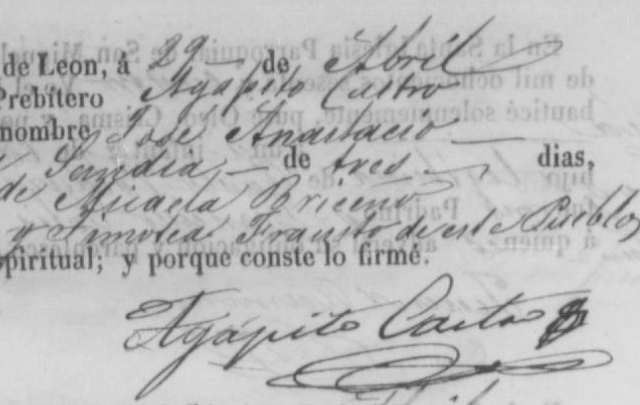 de Leon, á 29 de Abril
Prebítero Agapito Castro
nombre José Anastacio
Sandia de tres dias,
de Micaela Briceño
y Timotea Frausto de este Pueblo,
spiritual; y porque conste lo firmé.
Agapito Castro